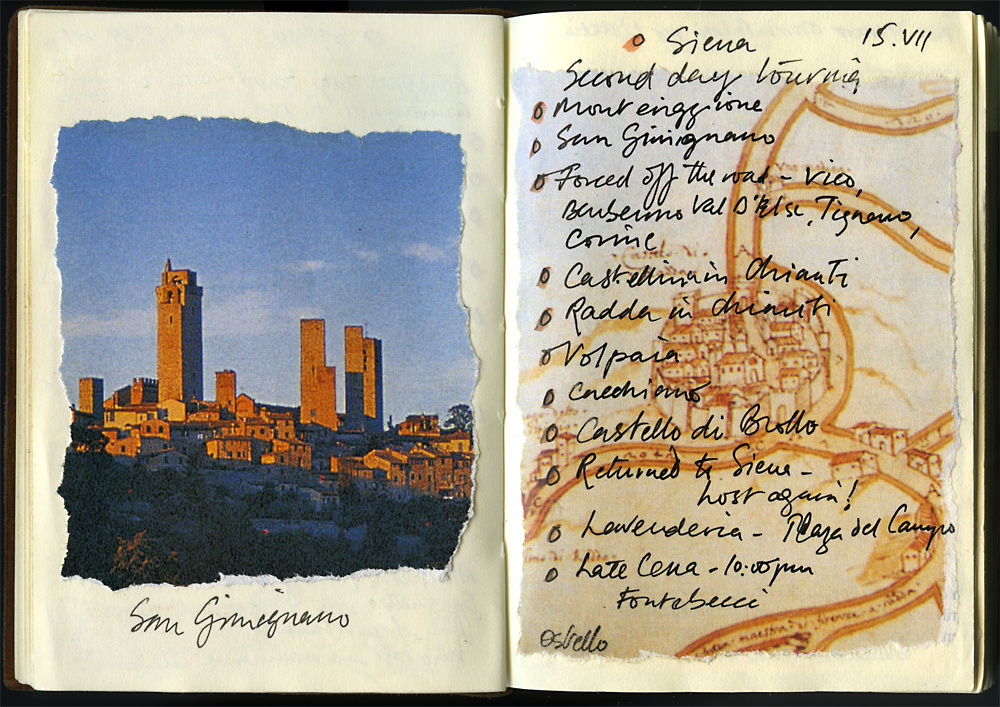 San Gimignano
Siena 15.VII
Second day tournà
Monteriggione
San Gimignano
Forced off the road - Vico,
Barberino Val D'Elsa, Tignano,
Castellina in Chianti
Radda in Chianti
Volpaia
Cacchiano
Castello di Brollo
Returned to Siena -
Lost again!
Lavenderia - Plaza del Campo
Late Cena - 10:00pm
Fontebecci
Ostello